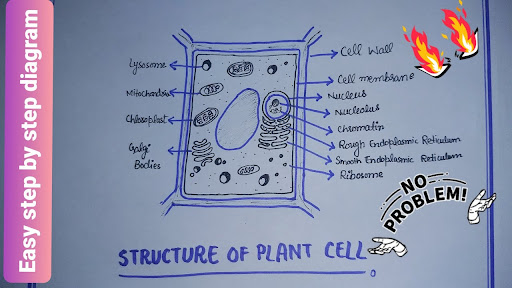 Easy step by step diagram
Lysosome
Mitochondria
Chloroplast
Golgi
Bodies
Cell Wall
Cell membrane
Nucleus
Nucleolus
Chromatin
Rough Endoplasmic Reticulum
Smooth Endoplasmic Reticulum
Ribosome
NO
PROBLEM!
STRUCTURE OF PLANT CELL.